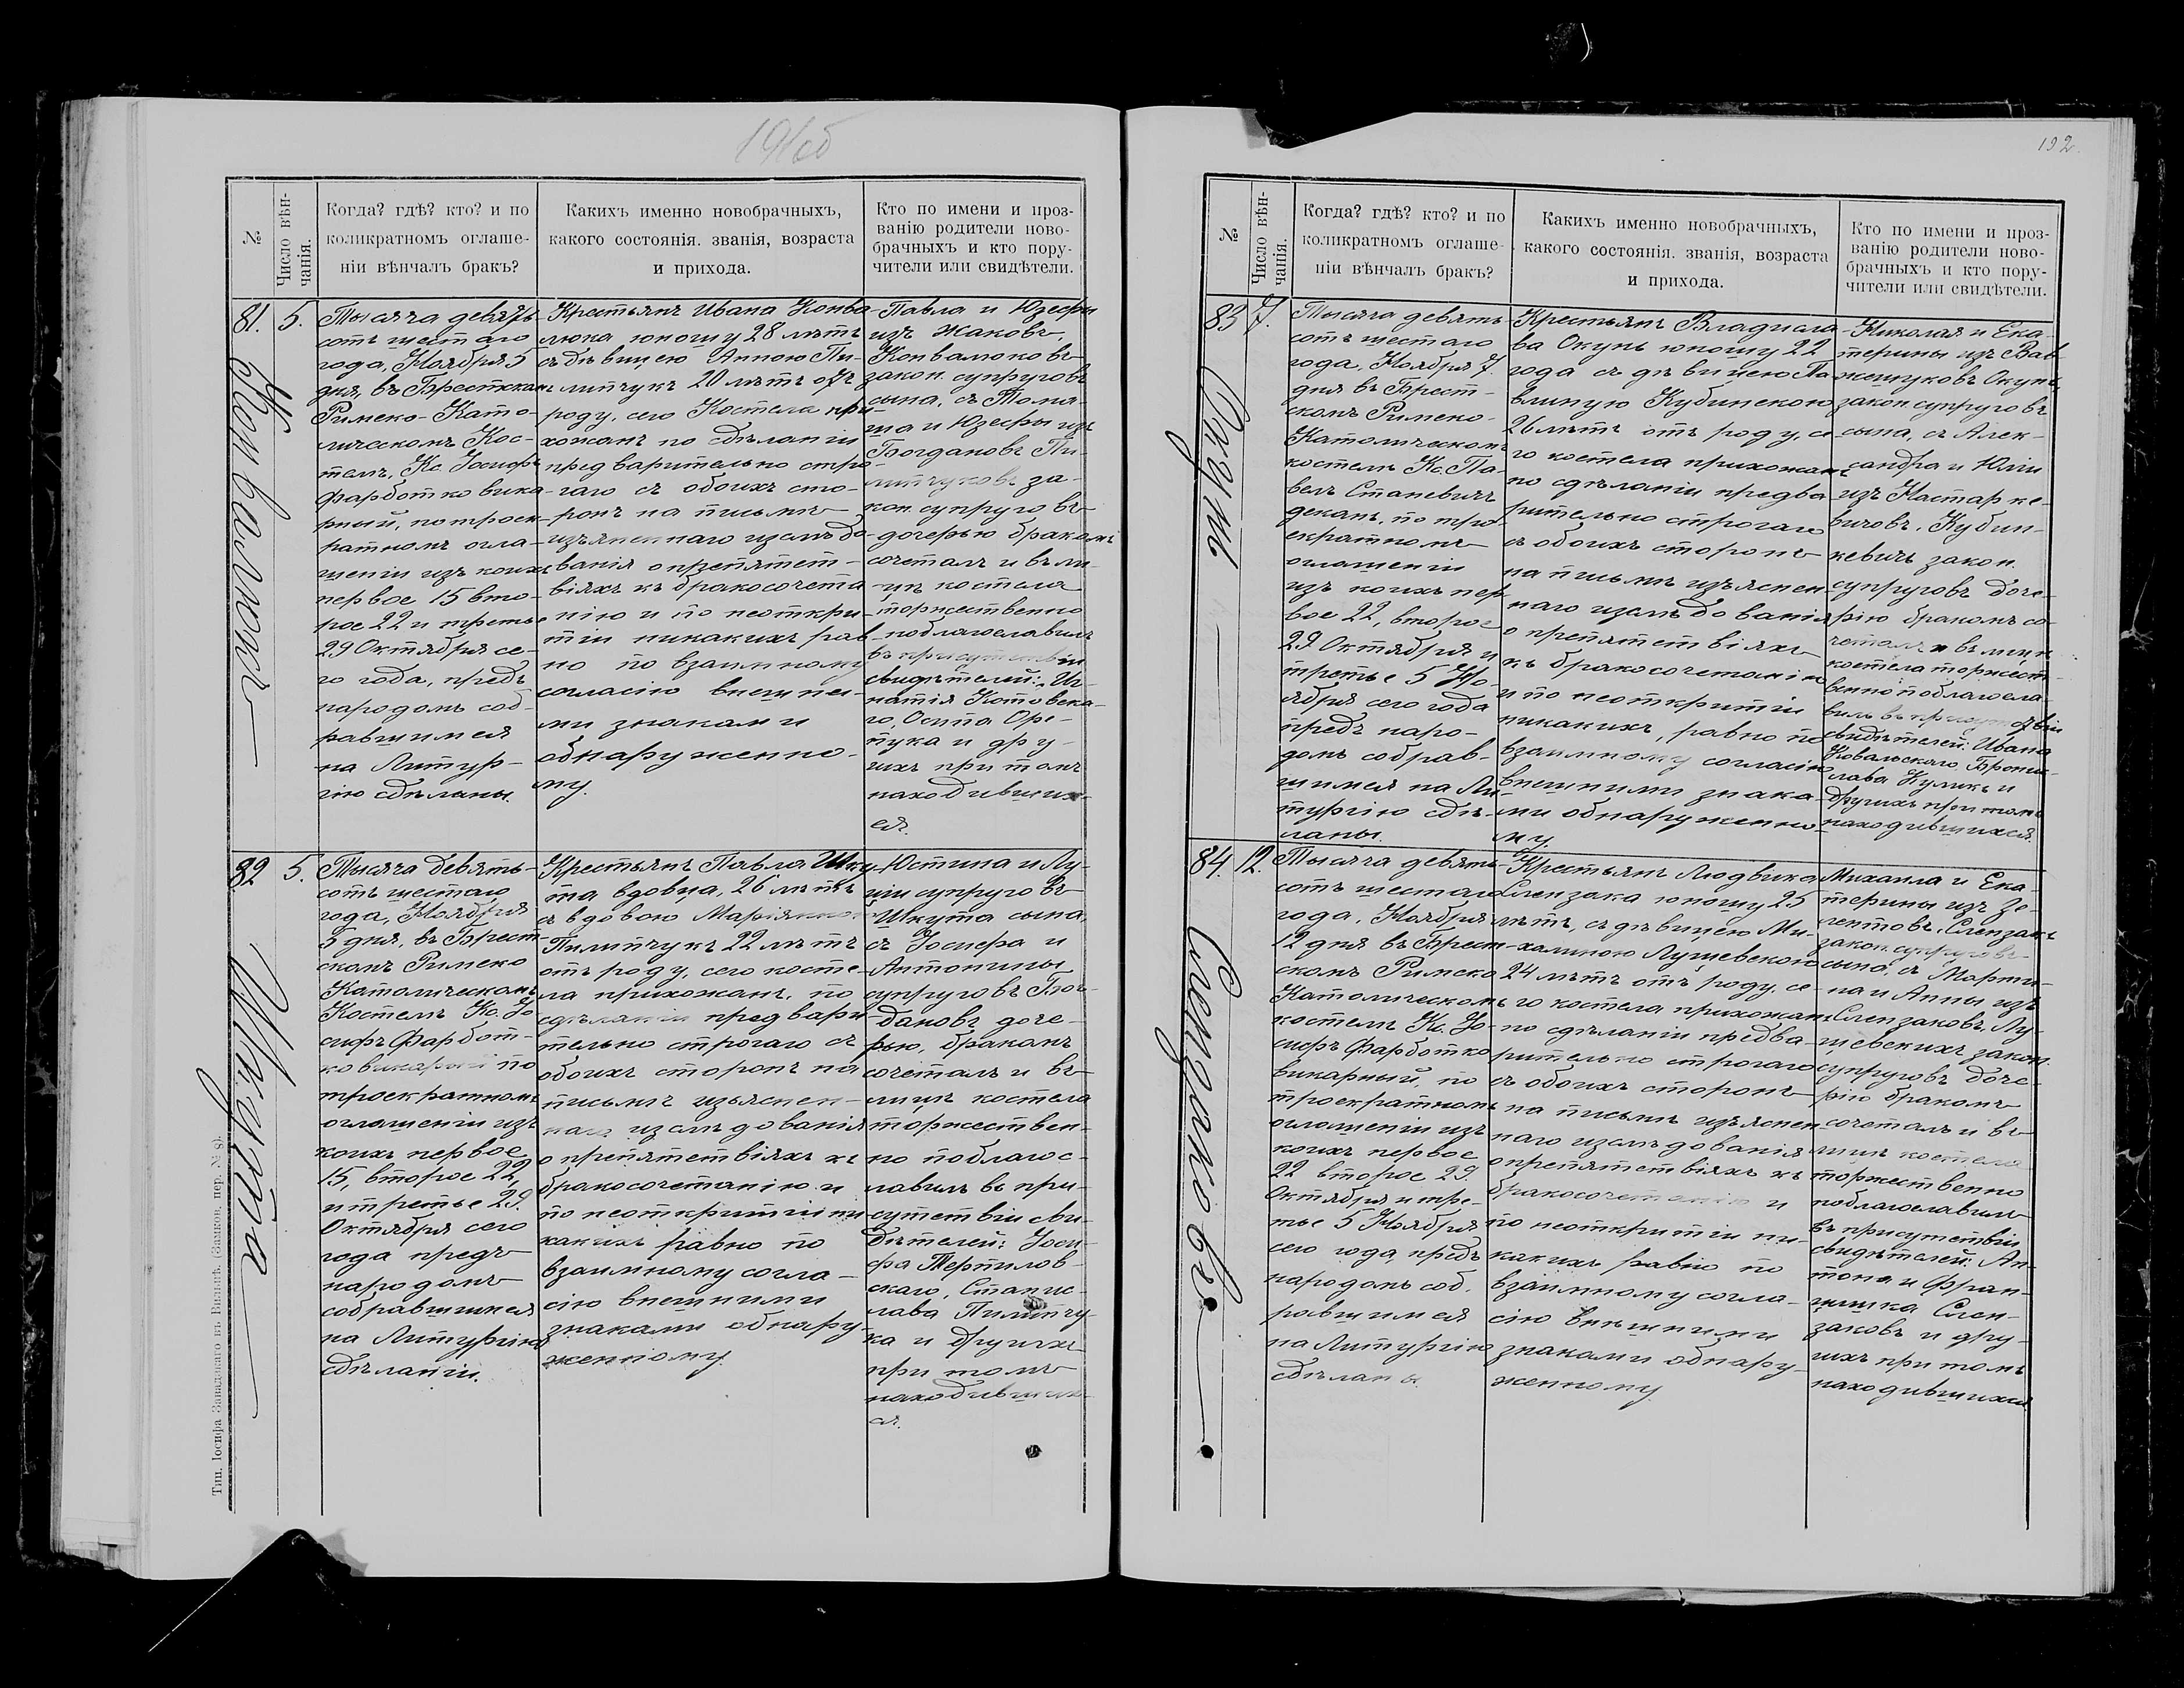 191об
№
Число вѣн-
чанія.
Когда? гдѣ? кто? и по
коликратномъ оглаше-
ніи вѣнчалъ бракъ?
Какихъ именно новобрачныхъ,
какого состоянія. званія, возраста
и прихода.
Кто по имени и проз-
ванію родители ново-
брачныхъ и кто пору-
чители или свидѣтели.
81.
5.
Конвалюкъ
Тысяча девять-
сотъ шестаго
года, Ноября 5
дня, въ Брестскомъ
Римско-Като-
лическомъ Кос-
телѣ, Кс. Іосифъ
Фарботко вика-
рный, по троек-
ратномъ огла-
шеніи изъ коихъ
первое 15 вто-
рое 22 и третье
29 Октября се-
го года, предъ
народомъ соб-
равшимся
на Литур-
гію сдѣланы.
Крестьянъ Ивана Конва-
люка юношу 28 лѣтъ
съ дѣвицею Анною Пи-
липчукъ 20 лѣтъ отъ
роду, сего Костела при-
хожанъ по сдѣланіи
предварительно стро-
гаго съ обоихъ сто-
ронъ на письмѣ
изъясненнаго изслѣдо-
ванія о препятст-
віяхъ къ бракосочета-
нію и по неоткры-
тіи никакихъ рав-
но по взаимному
согласію внешни-
ми знаками
обнаруженно-
му.
Павла и Юзефы
изъ Жаковъ,
Конвалюковъ
закон. супруговъ
сына, съ Тома-
ша и Юзефы изъ
Богдановъ Пи-
липчуковъ за-
кон. супруговъ
дочерью бракомъ
сочеталъ и въ ли-
цѣ костела
торжественно
поблагославилъ
въ присутствіи
свидѣтелей: Иг-
натія Котовска-
го, Осипа Оре-
пука и дру-
гихъ при томъ
находивших-
ся.
82
5.
Шкута
Тысяча девять-
сотъ шестаго
года, Ноября
5 дня, въ Брест-
скомъ Римско
Католическомъ
Костелѣ Кс. Іо-
сифъ Фарбот-
ко викарный по
троекратномъ
оглашеніи изъ
коихъ первое
15, второе 22,
и третье 29.
Октября сего
года предъ
народомъ
собравшимся
на Литургію
сдѣланіи.
Крестьянъ Павла Шку-
та вдовца, 26 лѣтъ
съ вдовою Маріянною
Пилипчукъ 22 лѣтъ
отъ роду, сего косте-
ла прихожанъ, по
сдѣланіи предвари-
тельно строгаго съ
обоихъ сторонъ на
письмѣ изъяснен-
наго изслѣдованія
о препятствіяхъ къ
бракосочетанію и
по неоткрытіи ни-
какихъ равно по
взаимному согла-
сію внешними
знаками обнару-
женному.
Юстина и Лу-
ціи супруговъ
Шкута сына,
съ Іосифа и
Антонины
супруговъ Бог-
дановъ доче-
рью, бракомъ
сочеталъ и въ
лицѣ костела
торжествен-
но поблагос-
лавилъ въ при-
сутствіи сви-
дѣтелей: Іоси-
фа Тертилов-
скаго, Станис-
лава Пилипчу-
ка и другихъ
при томъ
находивших-
ся.
Тип. Іосифа Завадзкаго въ Вильнѣ. (Замков. пер. № 8).
192.
№
Число вѣн-
чанія.
Когда? гдѣ? кто? и по
коликратномъ оглаше-
ніи вѣнчалъ бракъ?
Какихъ именно новобрачныхъ,
какого состоянія. званія, возраста
и прихода.
Кто по имени и проз-
ванію родители ново-
брачныхъ и кто пору-
чители или свидѣтели.
83
7.
Окунь
Тысяча девять-
сотъ шестаго
года, Ноября 7.
дня въ Брест-
скомъ Римско-
Католическомъ
костелѣ Кс. Па-
велъ Станевичъ
деканъ, по тро-
екратномъ
оглашеніи
изъ коихъ пер-
вое 22, второе
29 Октября и
третье 5 Но-
ября сего года
предъ наро-
домъ собрав-
шимся на Ли-
тургію сдѣ-
ланы.
Крестьянъ Владисла-
ва Окунь юношу 22
года съ дѣвицею Па-
влиную Кубинскою
26 лѣтъ отъ роду, се-
го костела прихожанъ
по сдѣланіи предва-
рительно строгаго
съ обоихъ сторонъ
на письмѣ изъяснен-
наго изслѣдованія
о препятствіяхъ
къ бракосочетанію
и по неоткрытіи
никакихъ, равно по
взаимному согласію
внешними знака-
ми обнаруженно-
му.
Николая и Ека-
терины изъ Вав-
жешуковъ Окунь
закон. супруговъ
сына, съ Алек-
сандра и Юліи
изъ Кастарке-
вичовъ, Кубин-
кевичъ закон.
супруговъ доче-
рію бракомъ со-
четалъ и въ лицѣ
костела торжест-
венно поблагосла-
вилъ въ присутствіи
свидѣтелей: Ивана
Ковальскаго Брони-
слава Куликъ и
другихъ при томъ
находившихся.
84.
12.
Слензаковъ
Тысяча девять-
сотъ шестаго
года, Ноября
12 дня въ Брест-
скомъ Римско
Католическомъ
костелѣ Кс. Іо-
сифъ Фарботко
викарный, по
троекратномъ
оглашеніи изъ
коихъ первое
22 второе 29.
Октября и тре-
тье 5 Ноября
сего года, предъ
народомъ соб-
равшимся
на Литургію
сдѣланы.
Крестьянъ Людвика
Слензака юношу 25
лѣтъ, съ дѣвицею Ми-
халиною Лушевскою
24 лѣтъ отъ роду, се-
го костела прихожанъ
по сдѣланіи предва-
рительно строгаго
съ обоихъ сторонъ
на письмѣ изъяснен-
наго изслѣдованія
о препятствіяхъ къ
бракосочетанію и
по неоткрытіи ни-
какихъ равно по
взаимному согла-
сію внешними
знаками обнару-
женному.
Михаила и Ека-
терины изъ Зе-
лентовъ, Слензакъ
закон. супруговъ
сына, съ Марти-
на и Анны изъ
Слензаковъ, Лу-
шевскихъ закон.
супруговъ доче-
рію бракомъ
сочеталъ и въ
лицѣ костела
торжественно
поблагославилъ
въ присутствіи
свидѣтелей: Ан-
тона и Фран-
цишка Слен-
заковъ и дру-
гихъ при томъ
находившихся.